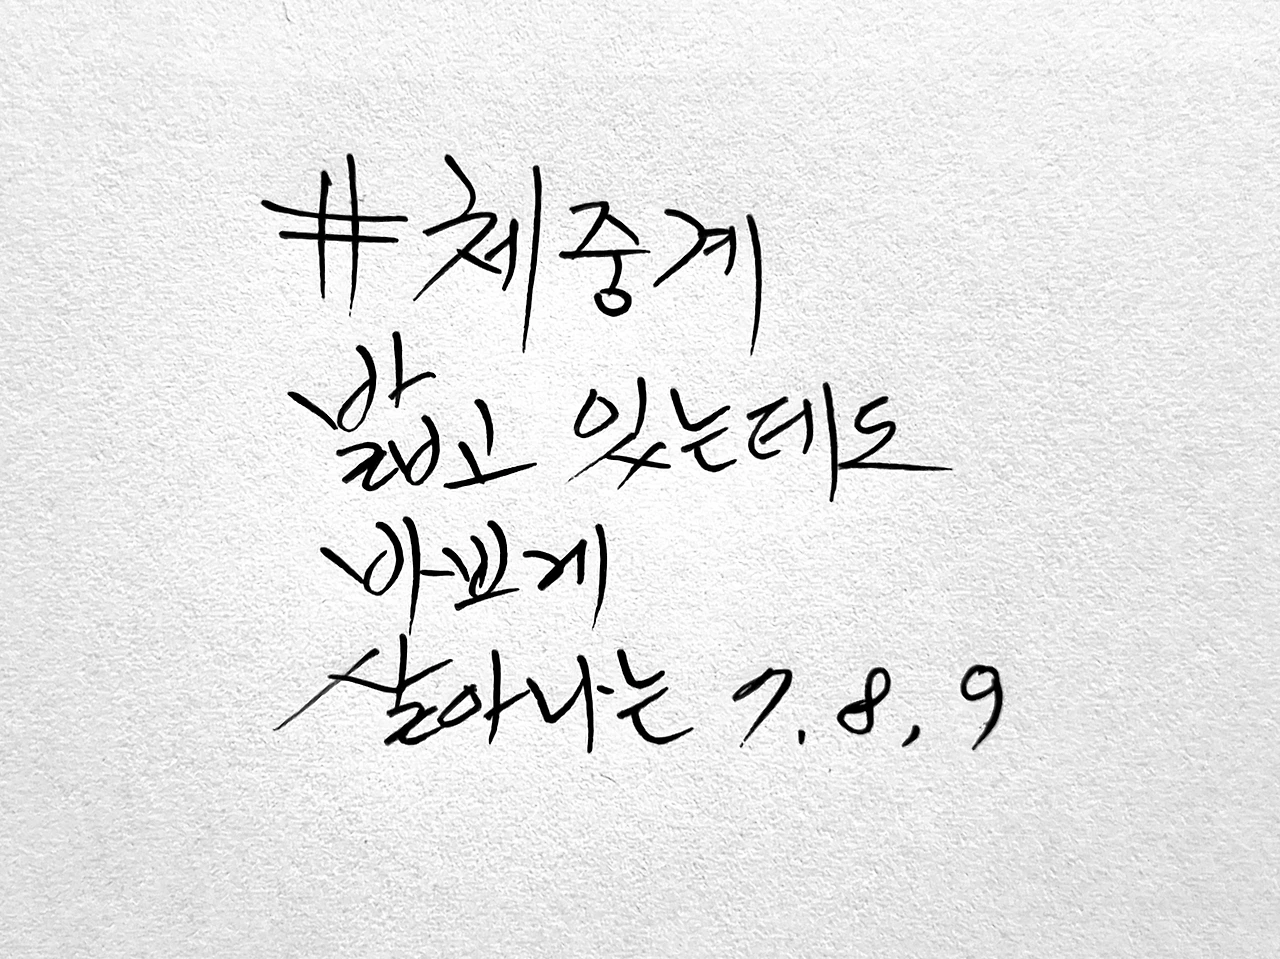 #체중계
밟고 있는데도
바쁘게
살아나는 7.8,9